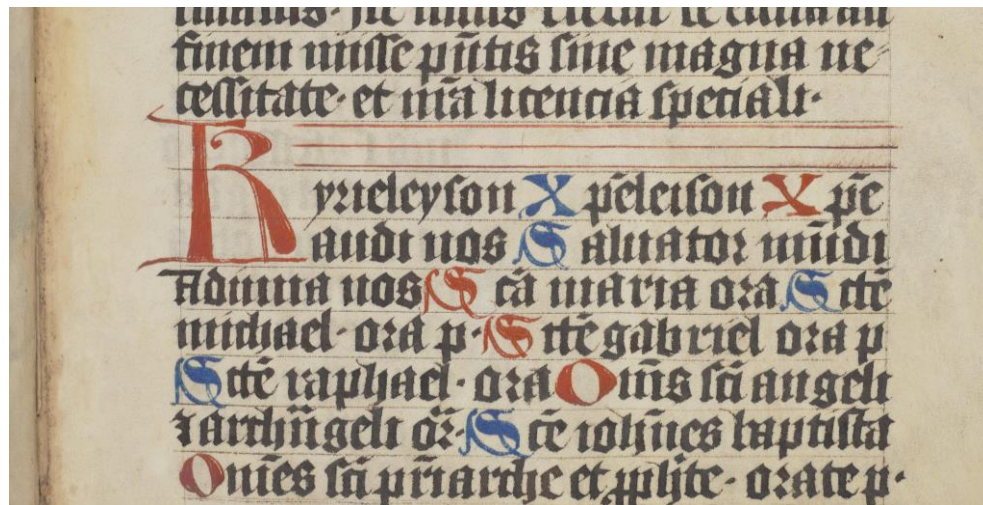 finem misse pn̄tis sine magna ne-
cessitate· et nr̄a licencia speciali·
Kyrieleyson Xp̄eleison Xp̄e
audi nos Saluator mūdi
Adiuua nos Sc̄a maria ora Sctē
michael· ora p· Sctē gabriel ora p
Sctē raphael· ora Om̄s sc̄i angeli
⁊ archn̄geli or̄· Sc̄e ioh̄nes baptista
Om̄es sc̄i pr̄iarche et ꝓph̄te· orate p·